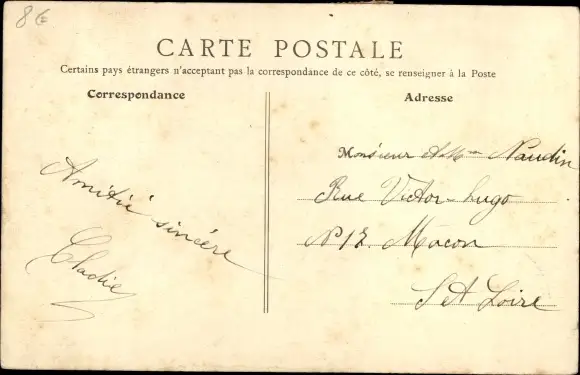 8€
CARTE POSTALE
Certains pays étrangers n'acceptant pas la correspondance de ce côté, se renseigner à la Poste
Correspondance
Adresse
Monsieur et Mme Naudin
Rue Victor-hugo
N° 12. Macon
S et Loire
Amitié sincère